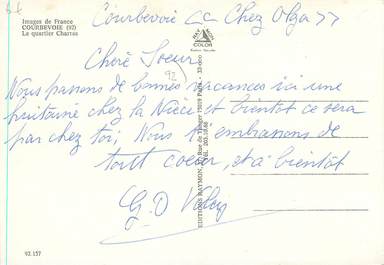 Images de France
COURBEVOIE (92)
Le quartier Charras
RAYMON
COLOR
Courbevoie << Chez Olga >>
Chère Soeur
92
Nous passons de bonnes vacances ici une
huitaine chez la Nièce et bientot ce sera
par chez toi, Nous t'embrassons de
tout coeur, et à bientôt
G. D
EDITIONS RAYMON, Rue de Tanger 75019 Paris
Tél. 203.10.66
92.157